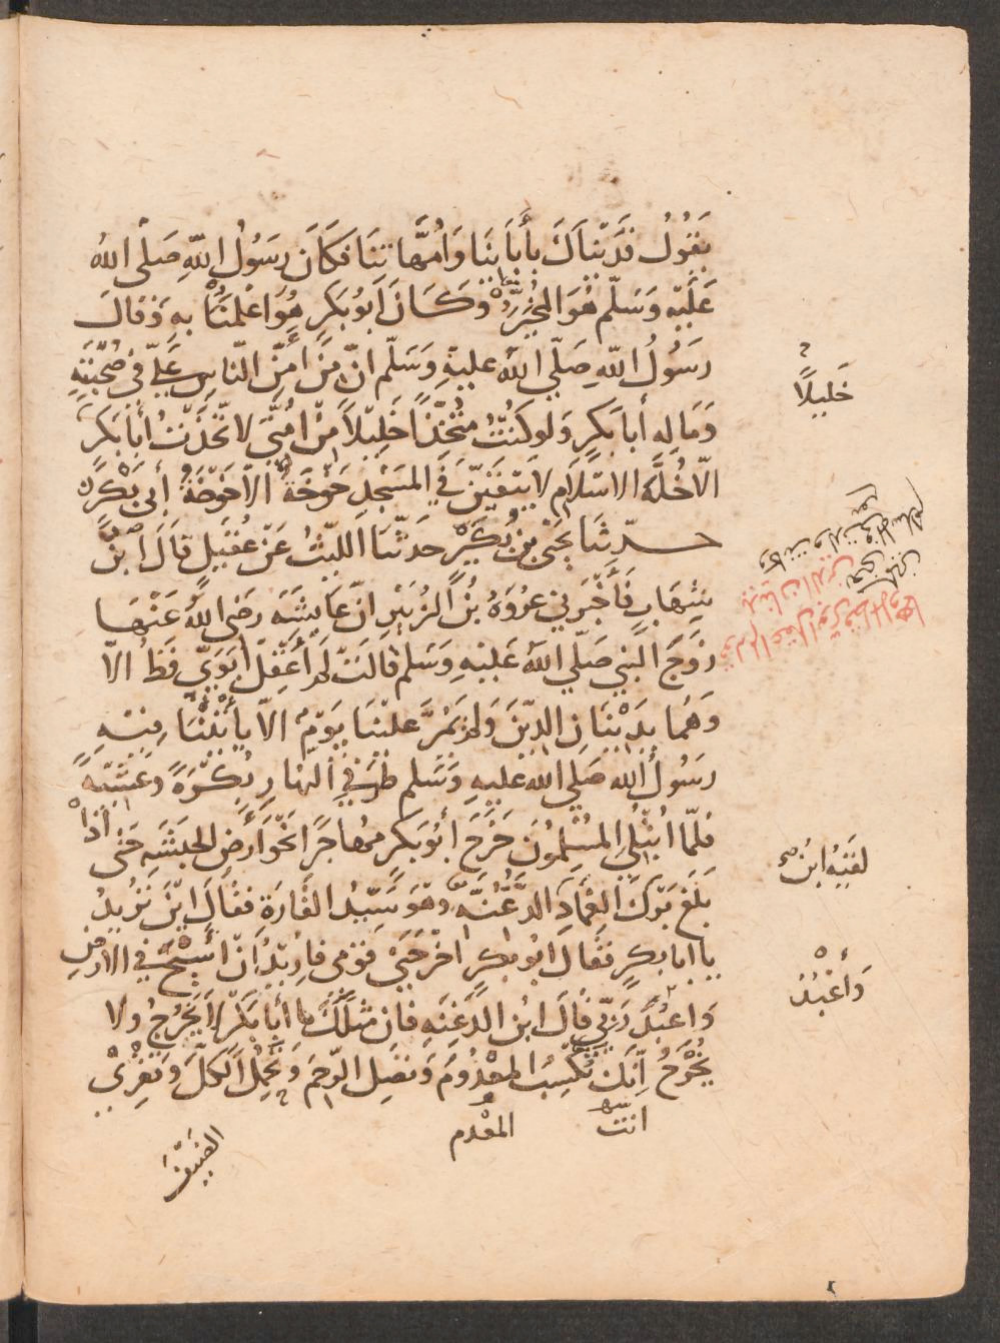 يَقُولُ فَدَيْنَاكَ بِأَبَائِنَا وَأُمَّهَاتِنَا فَكَانَ رَسُولُ اللّهِ صَلَّى اللهُ
عَلَيْهِ وَسَلَّم هُوَ المُخَيَّرُ وَكَانَ اَبُو بَكرٍ هُوَ اَعْلَمَنَا بِهِ وَقَالَ
رَسُولُ اللّهِ صَلَّي اللّهُ عليهِ وَسَلَّم انَّ مِنْ أَمَنِّ النّاسِ عَلَيّ في صُحْبَتِهِ
وَمَالِهِ أبا بَكرٍ وَلو كُنْتُ مُتَّخِذًا خَلِيْلاً مِنْ اُمَّتِي لاتَّخَذْتُ أبَا بَكرٍ
الّا خُلَّةَ الاسْلَامِ لا يَبْقَيَنَّ في المَسْجِدِ خَوْخَةٌ الّا خَوْخَةُ أبى بَكْرٍ
حدّثنا يَحْيَى بنُ بُكَيْرٍ حَدَّثَنَا اللّيْثُ عَنْ عُقَيلٍ قَالَ ابْنُ
شِهَابٍ فَأَخْبَرَنِي عُرْوَةُ بْنُ الزُبَيْرِ انّ عَايِشَةَ رضي اللهُ عَنْهَا
زَوْجَ النبي صَلّي اللهُ عَلَيْهِ وَسَلم قَالَتْ لَمْ أَعْقِلْ أبَوَيَّ قَطُّ الّا
وَهُمَا يَدِيْنَانِ الدِّيْنَ وَلَمْ يَمُرَّ عَلَيْنَا يَوْمٌ الّا يَأْتِيْنَا فِيْهِ
رَسُولُ الله صَلي الله عليهِ وَسَلم طَرَفَيِ النهارِ بُكْرَةً وعَشِيَّةً
فَلَمّا ابْتُلِيَ المُسْلِمُونَ خَرَجَ أبُو بَكرٍ مُهَاجِرًا نَحْوَ أَرْضِ الحَبَشَةِ حَتى اذا
بَلَغَ بَرْكَ الغِمَادِ الدَّغُنَّةِ وَهْوَ سَيّدُ القَارَةِ فقَالَ ايْنَ تُرِيدُ
يا ابا بكرٍ فقَالَ ابُو بكرٍ اخْرَجَنِي قَومِي فاُرِيْدُ انْ اَسِيْحَ في الارْضِ
وَاعْبُدَ رَبّي قَالَ ابْن الدَّغِنَةِ فان مِثلَكَ يا أبا بَكْرٍ لا يَخْرُجُ ولا
يُخْرَجُ إنّكَ تَكْسِبُ المعْدُومَ وَتصِلُ الرّحِمَ وَتَحْمِلُ الكَلَّ وَتَقْرِيْ
خَلِيلًا
لَقِيَهُ ابنُ صح
وَأَعْبُدَ
انت
المعْدِم
الضَيْفَ